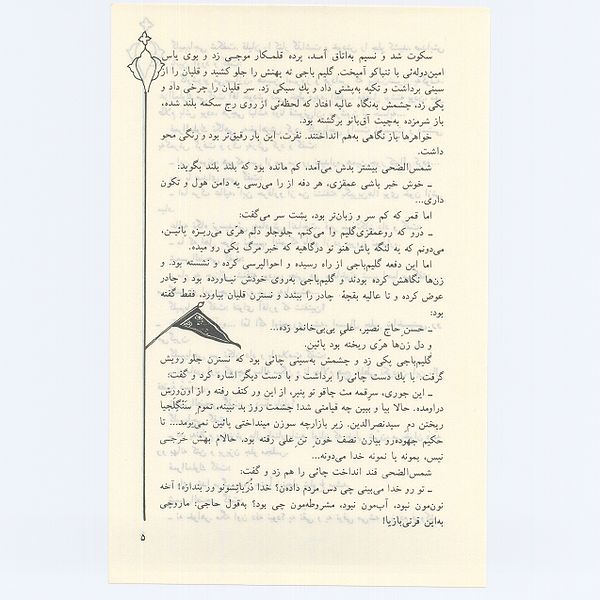 سکوت شد و نسیم به‌اتاق آمـد، پرده قلمـکار موجـی زد و بوی یاس
امین‌دوله‌ئی با تنباکو آمیخت. گلیم باجی نه پهنش را جلو کشید و قلیان را از
سینی برداشت و تکیه به‌پشتی داد و یك سبکی زد. سر قلیان را چرخی داد و
یکی زد، چشمش به‌نگاه عالیه افتاد که لحظه‌ئی از روی رج سکمه بلند شده،
باز شرمزده به‌چیت آق‌بانو برگشته بود.
خواهرها باز نگاهی به‌هم انداختند. نفرت، این بار رقیق‌تر بود و رنگی محو
داشت.
شمس‌الضحی بیشتر بدش می‌آمد، کم مانده بود که بلند بلند بگوید:
ـ خوش خبر باشی عمقزی، هر دفه از را می‌رسی یه دامن هول و تکون
داری...
اما قمر که کم سر و زبان‌تر بود، پشت سر می‌گفت:
ـ دَرو که روعمقزی‌گلیم وا می‌کنم، جلوجلو دلم هرّی می‌ریـزه پائیـن،
می‌دونم که یه لنگه پاش هنو تو درگاهیه که خبر مرگ یکی رو میده.
اما این دفعه گلیم‌باجی از راه رسیده و احوالپرسی کرده و نشسته بود. و
زن‌ها نگاهش کرده بودند و گلیم‌باجی به‌روی خودش نیـاورده بود و چادر
عوض کرده و تا عالیه بقچهٔ چادر را ببندد و نسترن قلیان بیاورد، فقط گفته
بود:
ـ حسن حاج نصیر، علی بی‌بی‌خانمو زده...
و دل زن‌ها هرّی ریخته بود پائین.
گلیم‌باجی یکی زد و چشمش به‌سینی چائی بود که نسترن جلو رویش
گرفت. با یك دست چائی را برداشت و با دست دیگر اشاره کرد و گفت:
ـ این جوری، سرقمه مث چاقو تو پنیر، از این ور کتف رفته و از اون‌ورش
دراومده. حالا بیا و ببین چه قیامتی شد! چشمت روز بد نبینه، تموم سَنْگِلَجیا
ریختن دم سیدنصرالدین. زیر بازارچه سوزن مینداختی پائین نمی‌یومد... تا
حکیم جهودەرو بیارن نصف خون تن علی رفته بود. حالام بهش خَرَجـی
نیس، بمونه یا نمونه خدا می‌دونه...
شمس‌الضحی قند انداخت چائی را هم زد و گفت:
ـ تو رو خدا می‌بینی چی دس مردم دادن؟ خدا ذُرّیاتِشونو ور بندازه! آخه
نون‌مون نبود، آب‌مون نبود، مشروطه‌مون چی بود؟ به‌قول حاجی: ماروچی
به‌این قرتی‌بازیا!
۵